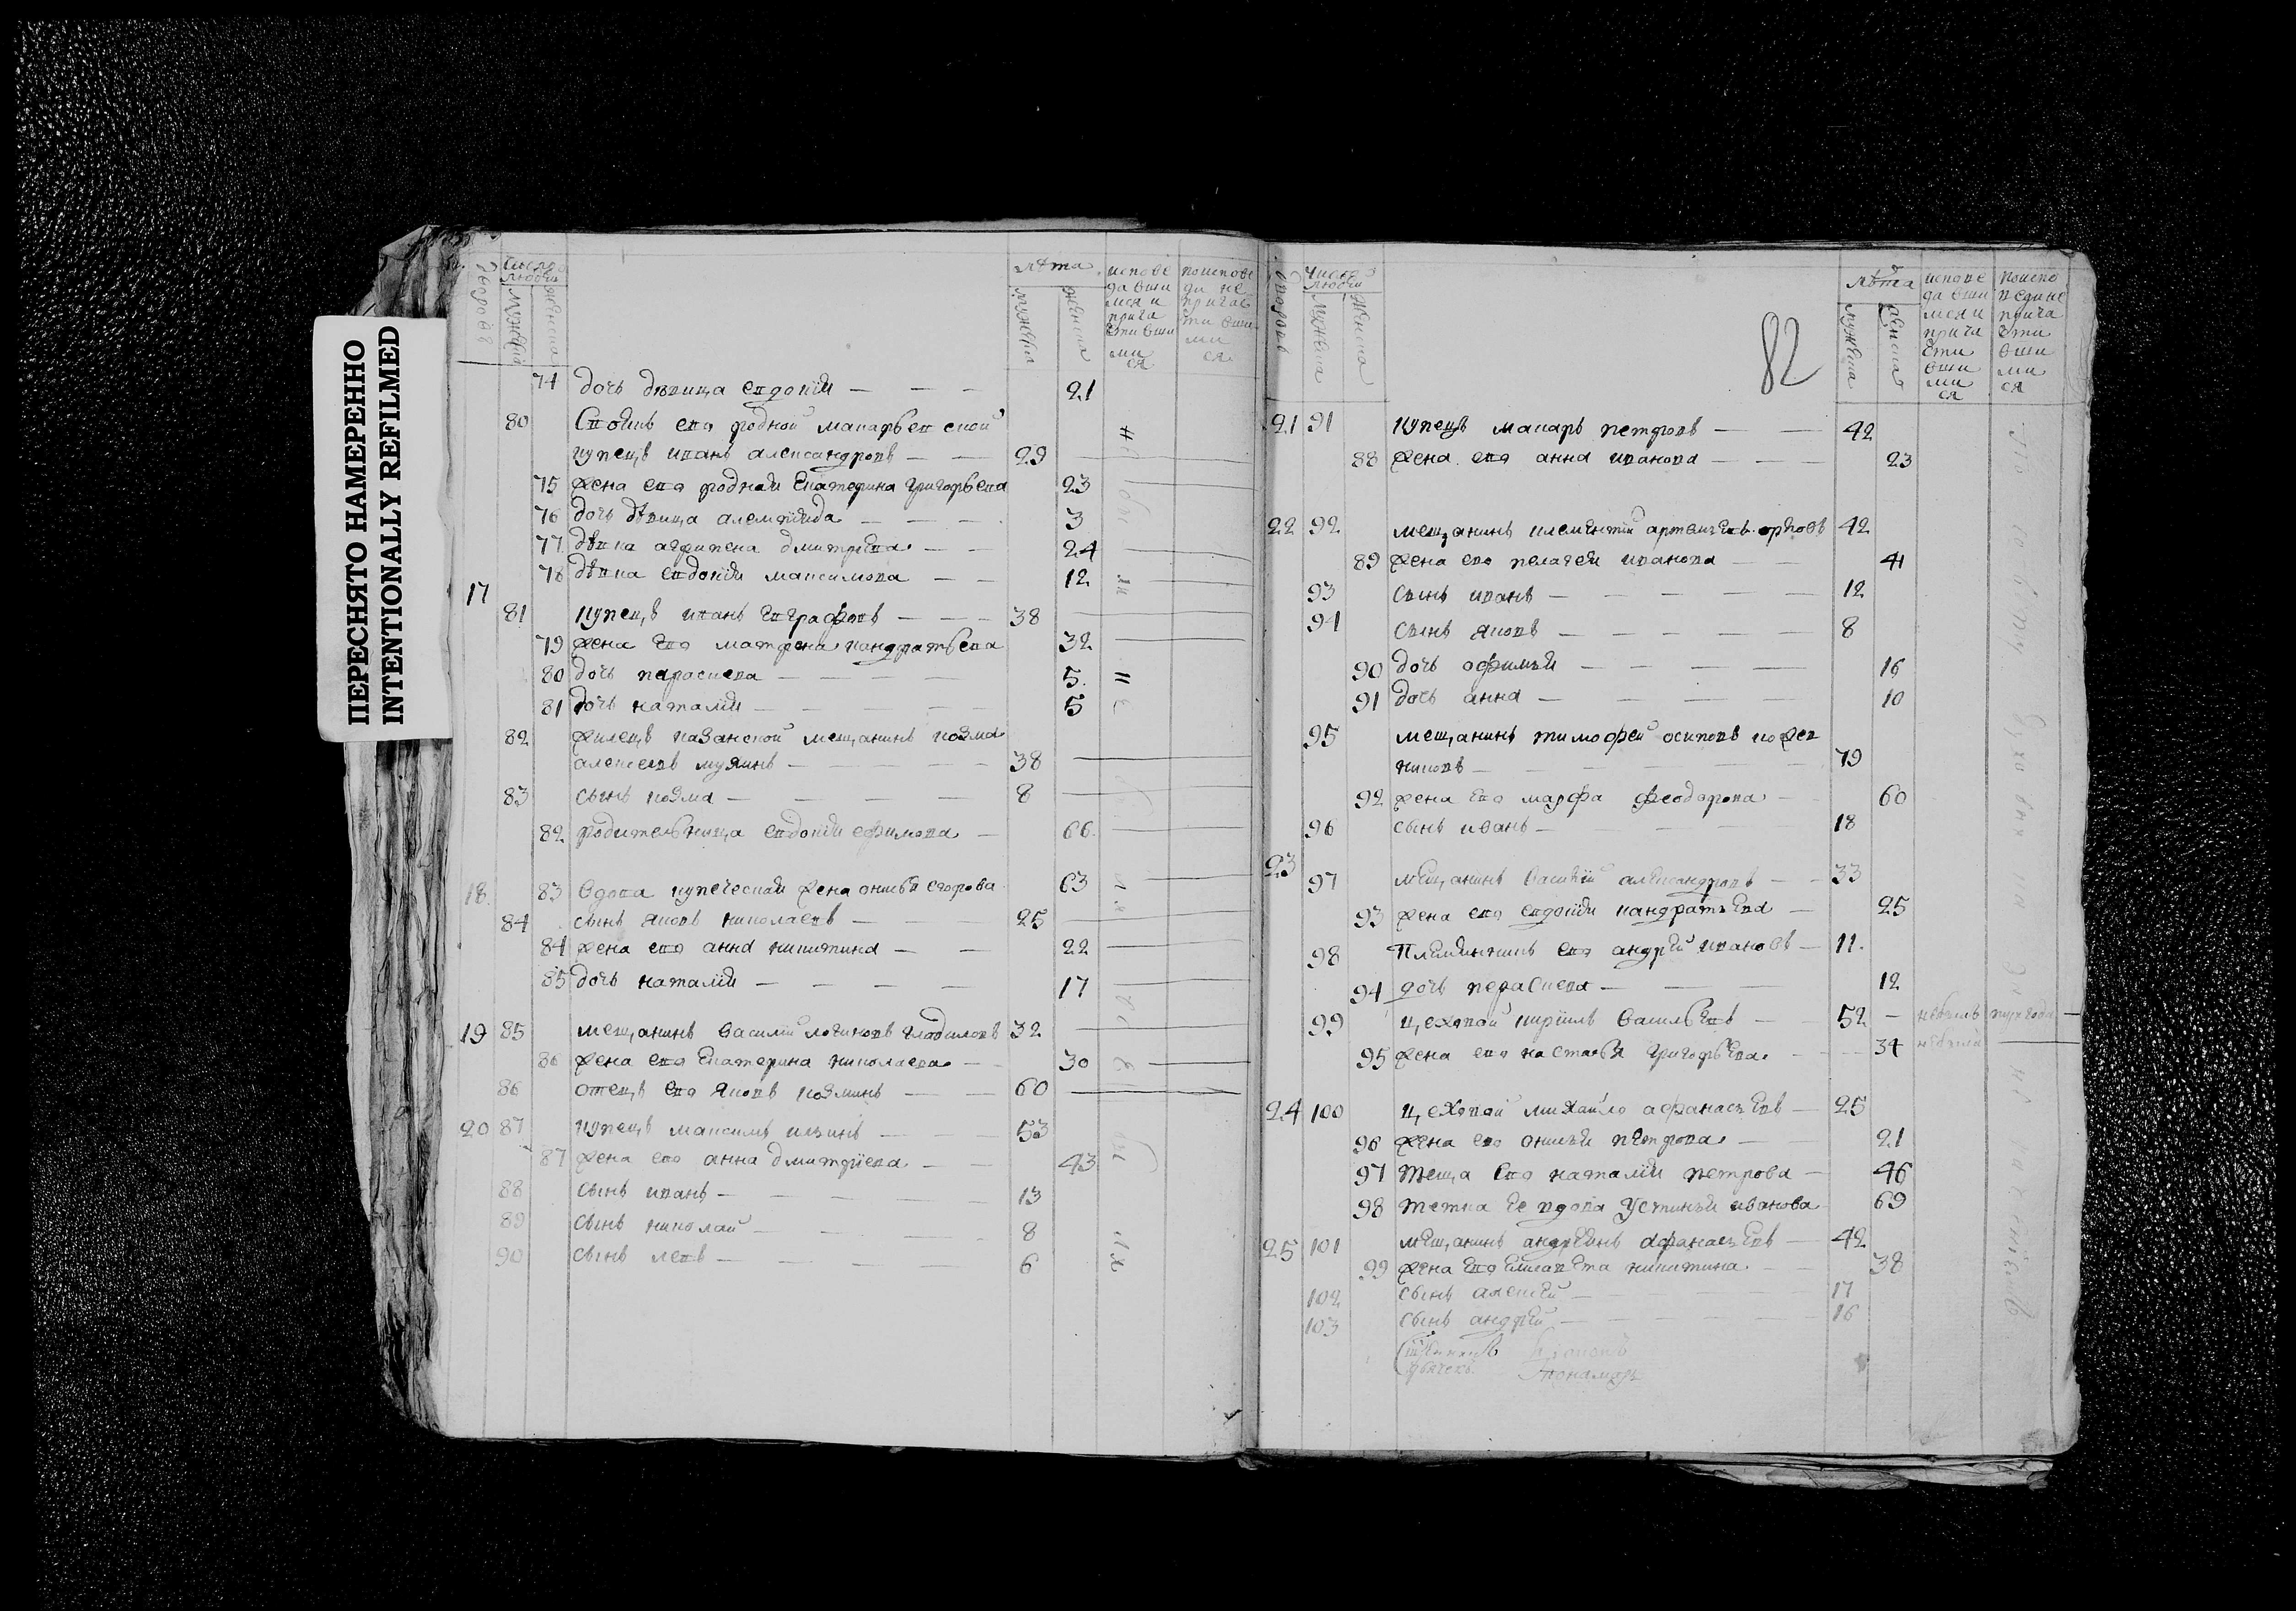 ПЕРЕСНЯТО НАМЕРЕННО
INTENTIONALLY REFILMED
дворовъ
Число людей
мужеска
женска
лѣта
мужеска
женска
исповедавшимся и причастившимися
по исповеди не причастившимися
74 дочь дѣвица евдокия — 21
80 Своякъ его родной макарьевской
купецъ иванъ александровъ — 29
75 жена его родная Екатерина григорьева 23
76 дочь дѣвица алемпиада — 3
77 дѣвка агрипена дмитриева — 24
78 дѣвка евдокия максимова — 12
17
81 купецъ иванъ Евграфовъ — 38
79 жена Его матрена кандратьева 32
80 дочь параскева — 5
81 дочь наталия — 5
82 жилецъ казанской мещанинъ козма
алексеевъ мулинъ — 38
83 сынъ козма — 8
82 родительница евдокия ефимова — 66
18 83 вдова купеческая жена онисья егорова 63
84 сынъ яковъ николаевъ — 25
84 жена его анна никитина — 22
85 дочь наталия — 17
19 85 мещанинъ василий логиновъ гладиловъ 32
86 жена его Екатерина николаева — 30
86 отецъ его яковъ козминъ — 60
20 87 купецъ максимъ илинъ — 53
87 жена его анна дмитриева — 43
88 сынъ иванъ — 13
89 сынъ николай — 8
90 сынъ левъ — 6
82
дворовъ
Число людей
мужеска
женска
лѣта
мужеска
женска
исповедавшимся и причастившимися
по исповеди не причастившимися
21 91 купецъ макаръ петровъ — 42
88 жена его анна иванова — 23
22 92 мещанинъ клементий артемьевъ орловъ 42
89 жена его пелагея иванова — 41
93 сынъ иванъ — 12
94 сынъ яковъ — 8
90 дочь офимья — 16
91 дочь анна — 10
95 мещанинъ тимофей осиповъ кожев
никовъ — 79
92 жена его марфа феодорова — 60
96 сынъ иванъ — 18
23
97 мещанинъ василий александровъ — 33
93 жена его евдокия кандратьева — 25
98 племянникъ его андрей ивановъ — 11
94 дочь пераскева — 12
99 цеховой кирилъ васильевъ — 52 — небылъ
95 жена его настасья григорьева — 34
24 100 цеховой михайло афанасьевъ — 25
96 жена его онисья петрова — 21
97 теща его наталия петрова — 46
98 тетка Ее вдова устинья иванова 69
25 101 мещанинъ андреянъ афанасьевъ — 42
99 жена его Елисавета никитина — 38
102 сынъ алексей — 17
103 сынъ андрей — 16
пономарь